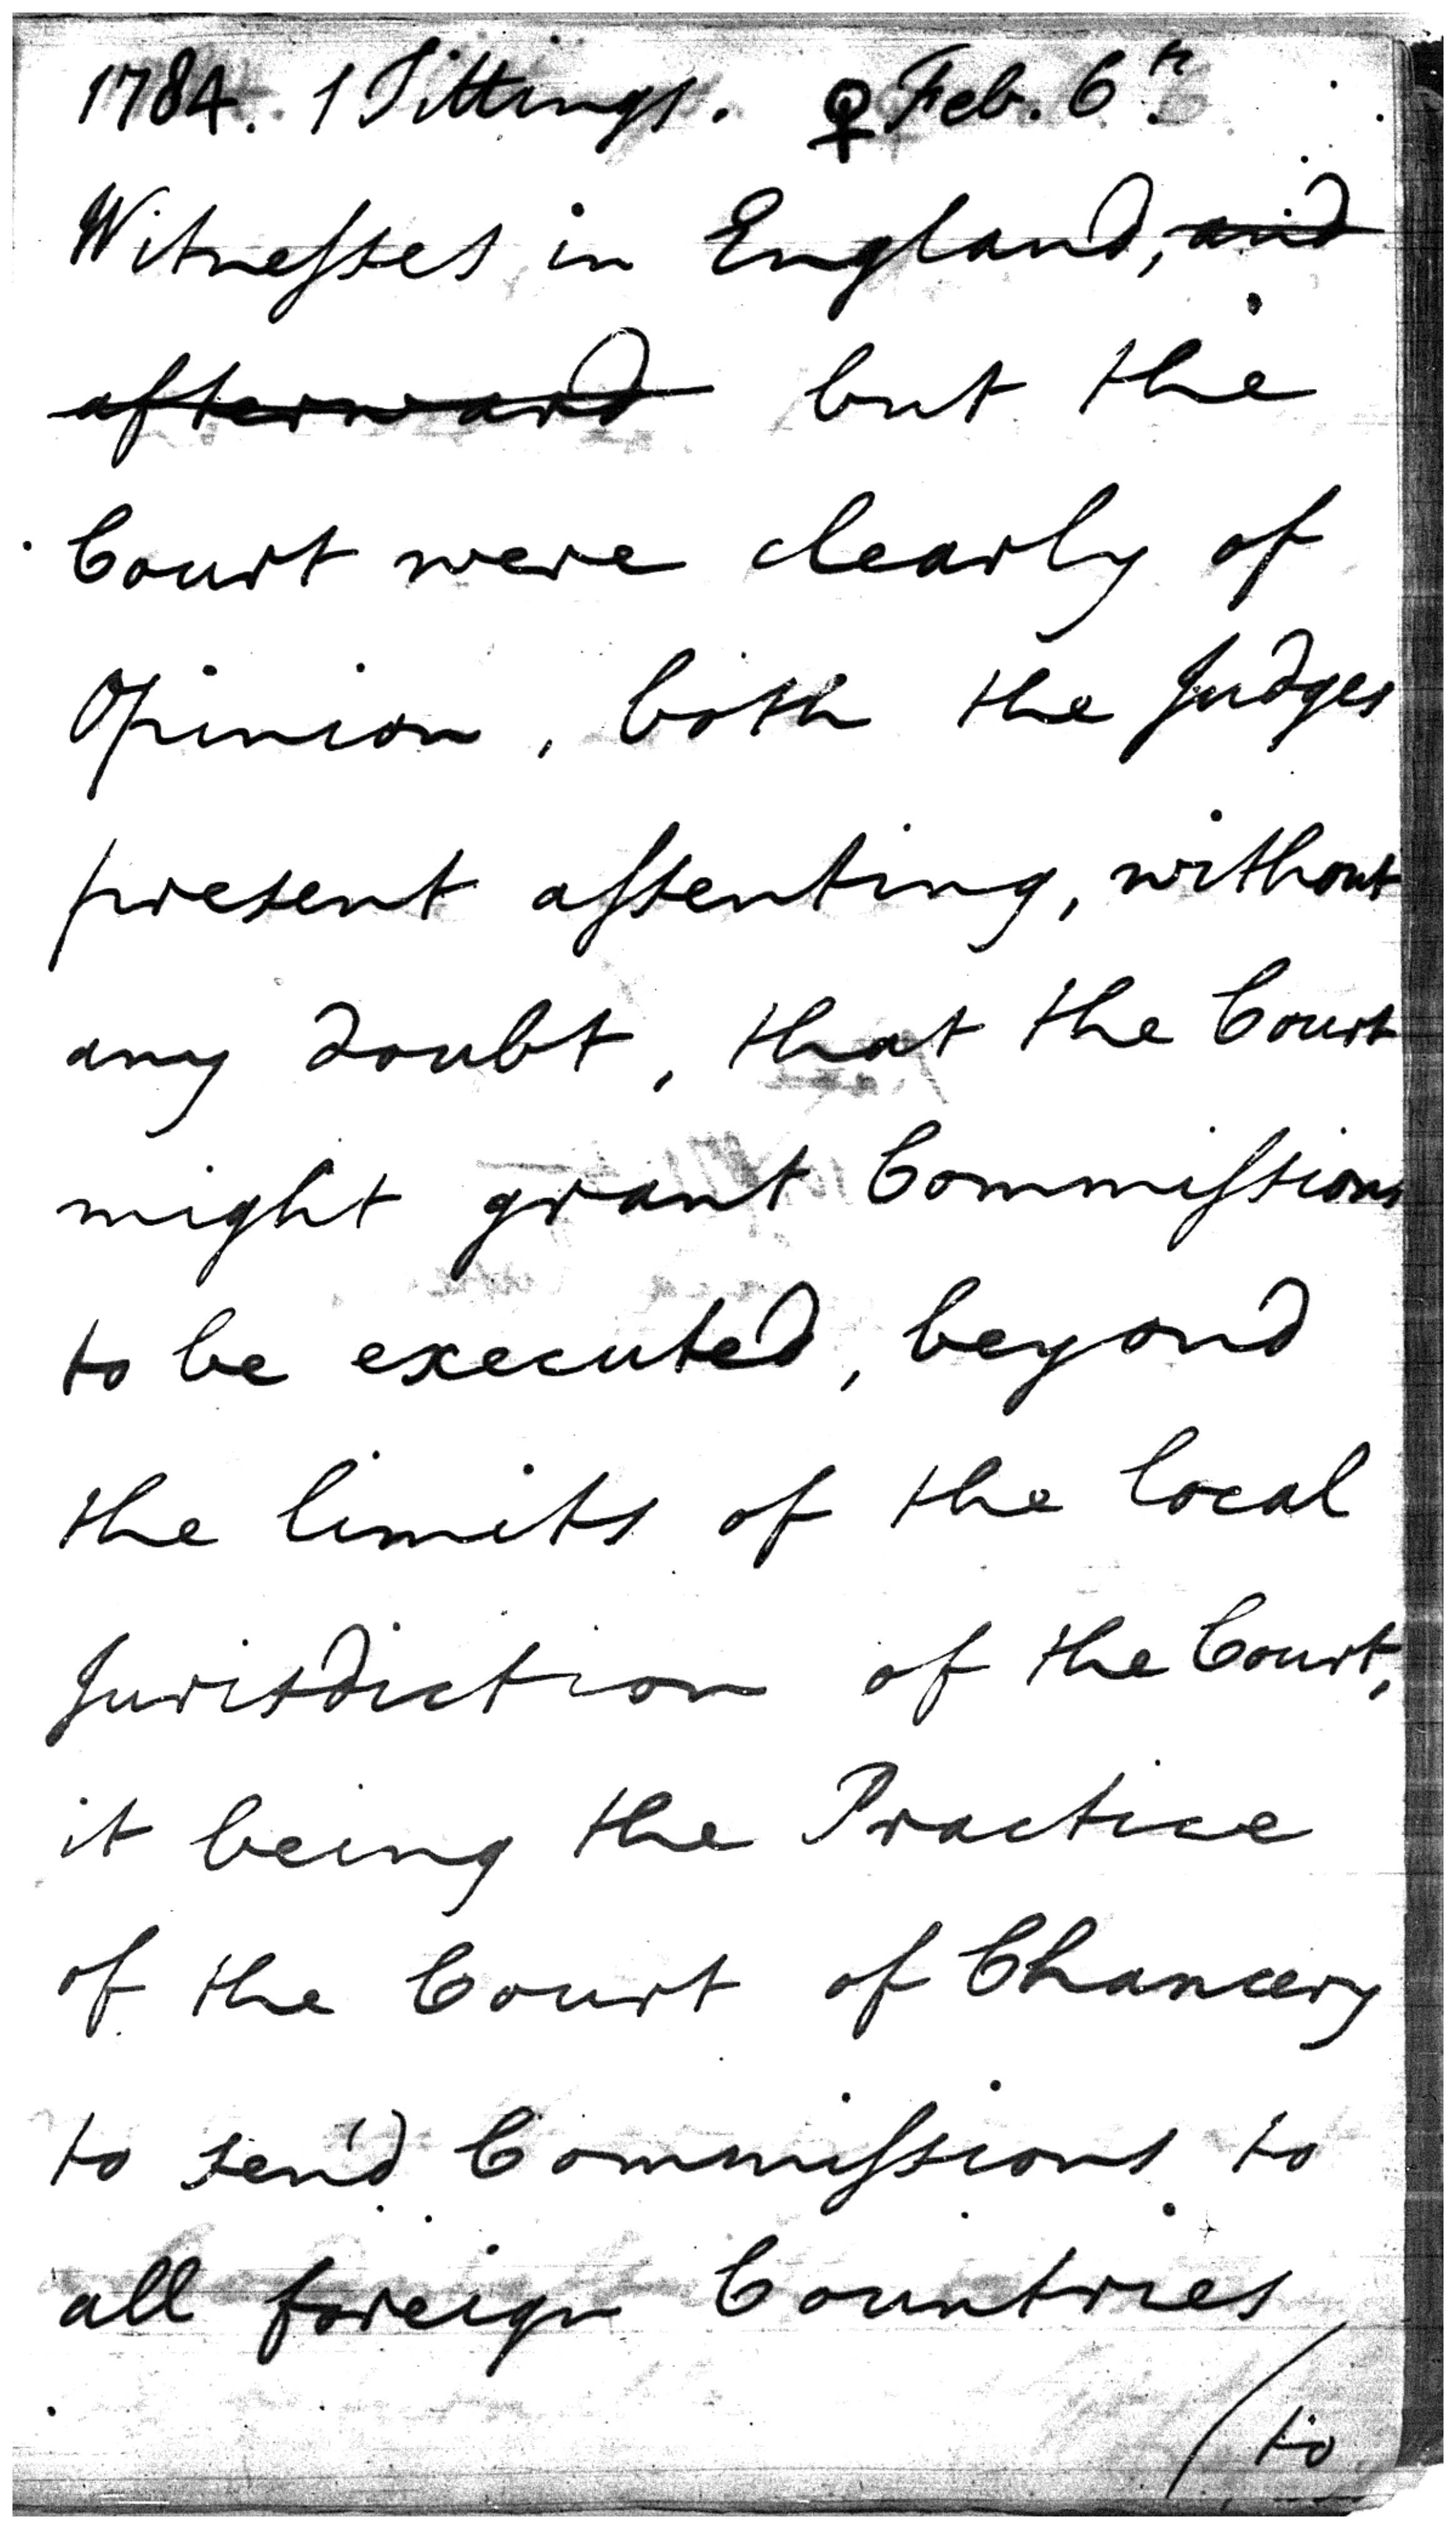 1784. 1 Sittings. ♀ Feb. 6th
Witneſses in England, ~~and~~
~~afterward~~ but the
Court were clearly of
Opinion, both the Judges
present aſsenting, without
any doubt, that the Court
might grant Commiſsions
to be executed, beyond
the limits of the local
Jurisdiction of the Court,
it being the Practice
of the Court of Chancery
to send Commiſsions to
all foreign Countries
/to